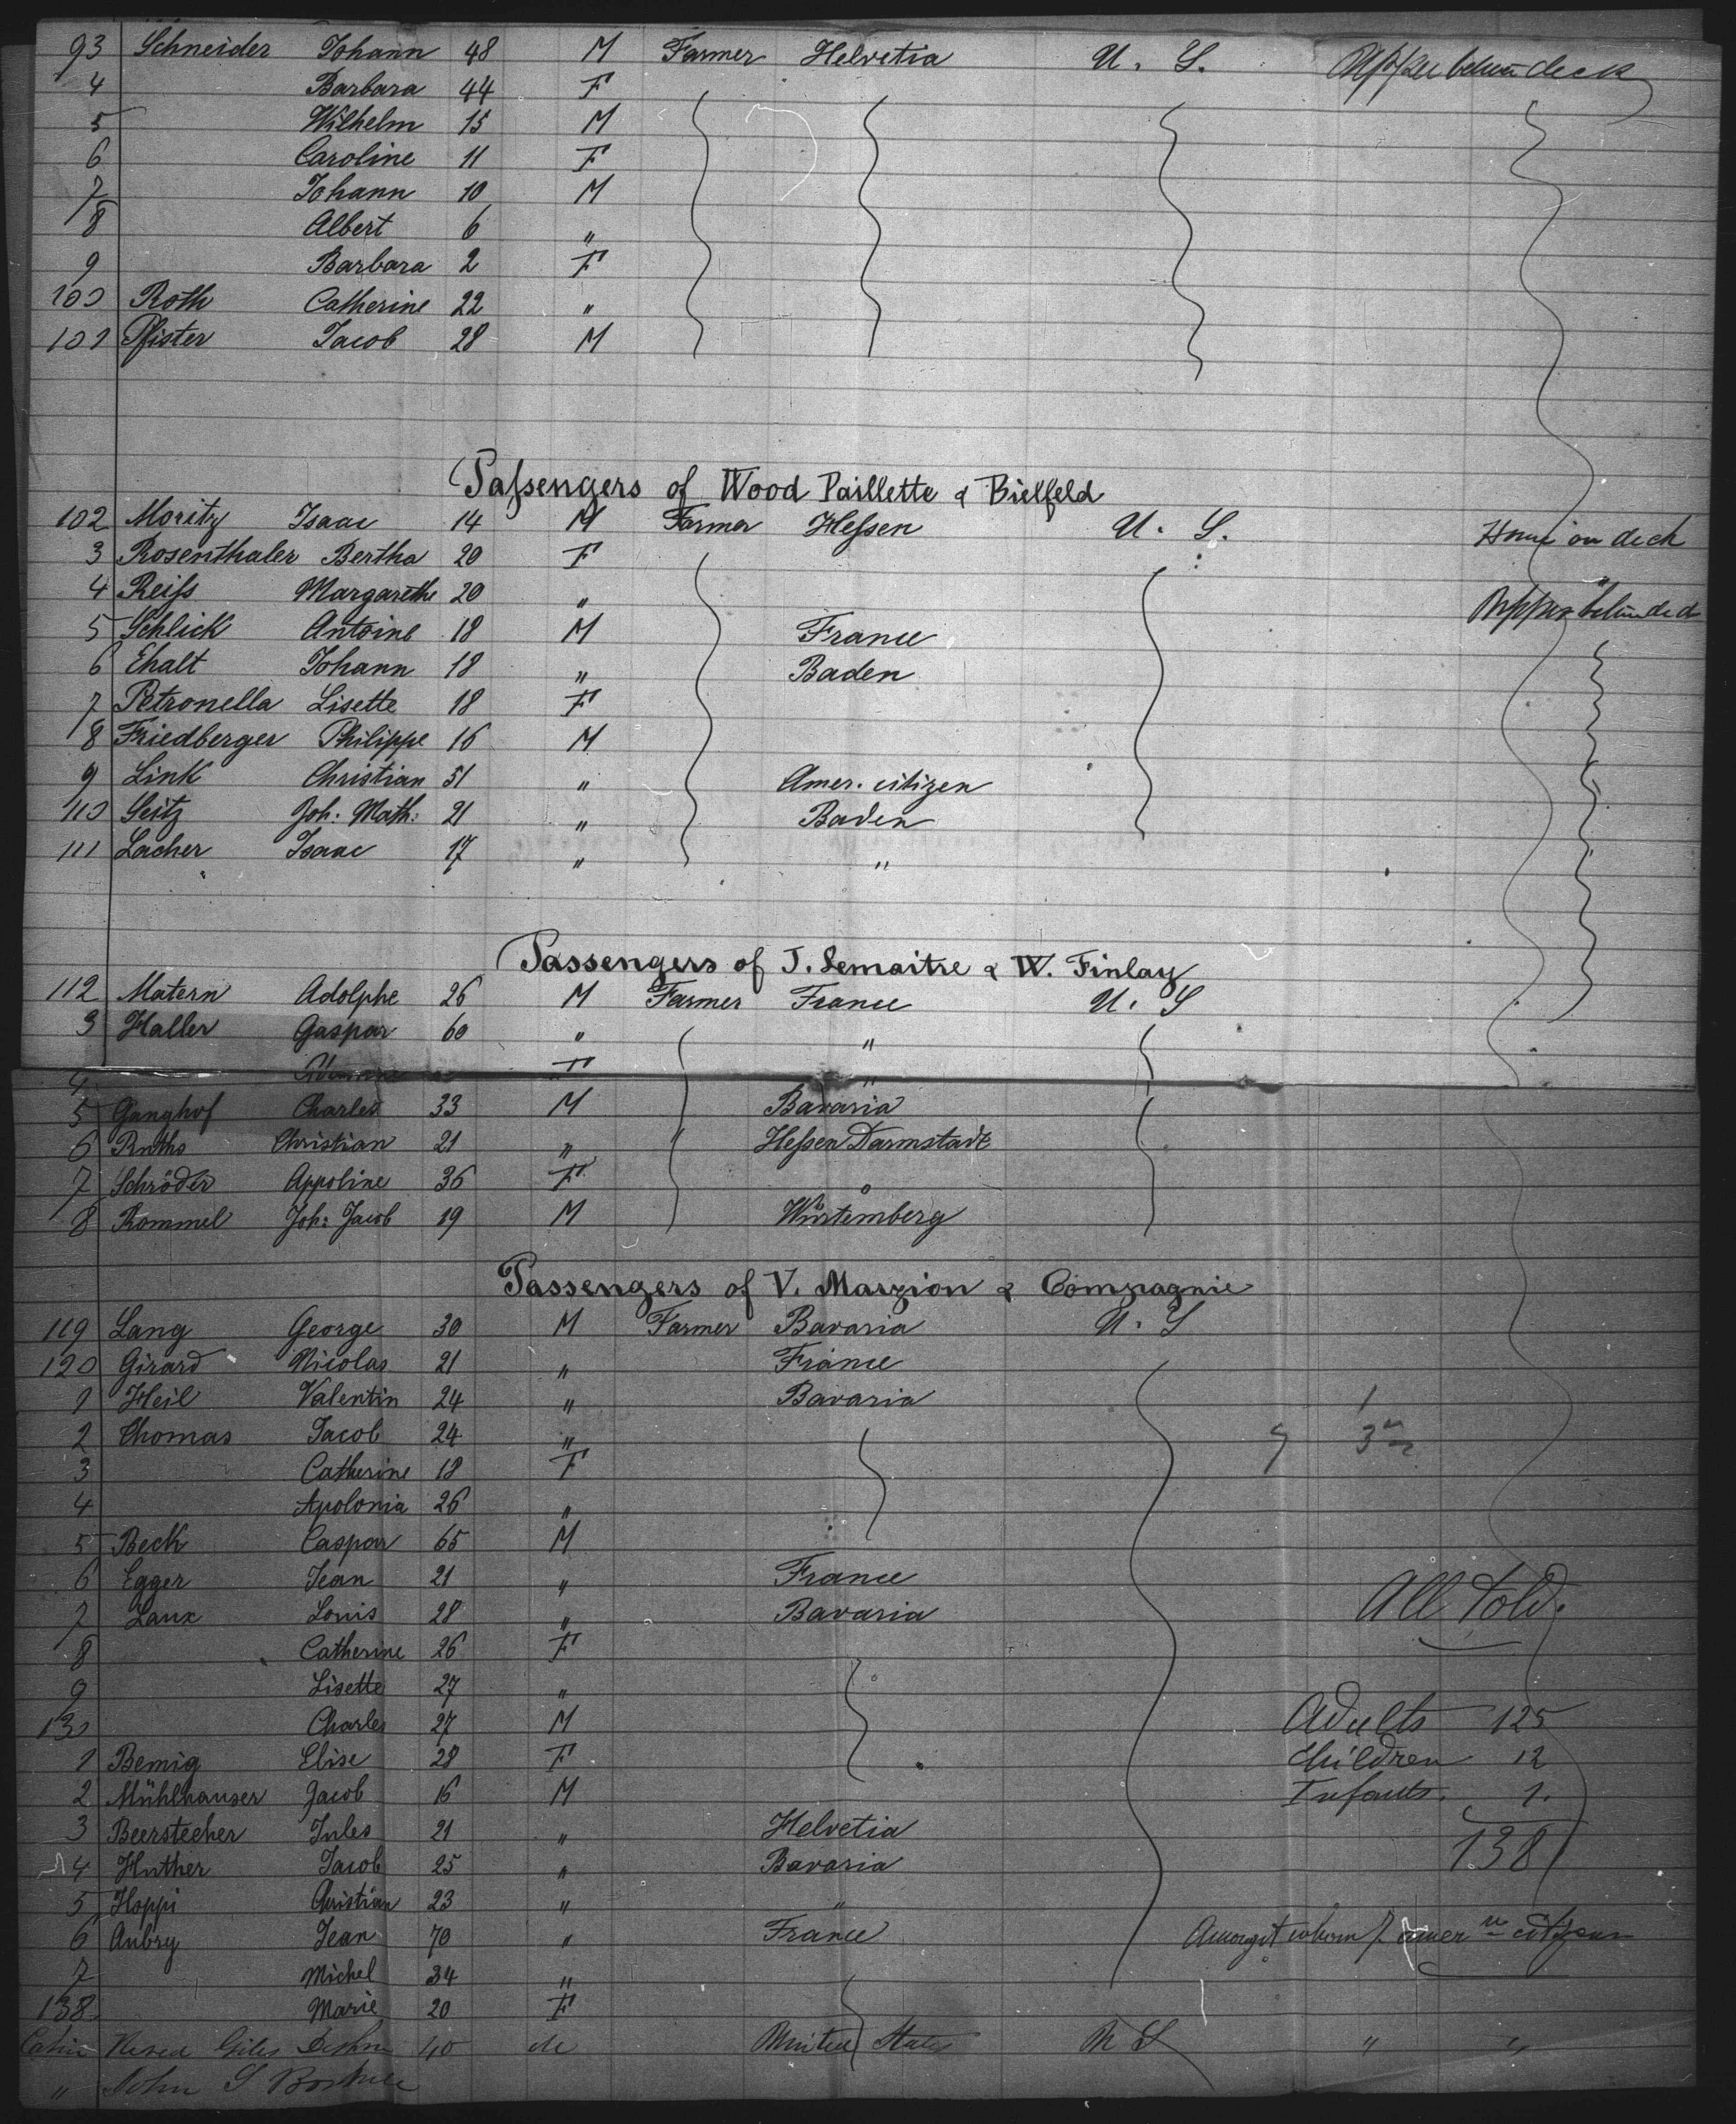 93 Schneider Johann 48 M Farmer Helvetia U. S. Upper between deck
4 Barbara 44 F
5 Wilhelm 15 M
6 Caroline 11 F
7 Johann 10 M
8 Albert 6 "
9 Barbara 2 F
100 Roth Catherine 22 "
101 Pfister Jacob 28 M
Passengers of Wood Paillette & Bielfeld
102 Moritz Isaac 14 M Farmer Hessen U. S. on deck
3 Rosenthaler Bertha 20 F
4 Reiss Margarethe 20 " Upper
5 Schlick Antoine 18 M France
6 Ehalt Johann 18 " Baden
7 Petronella Lisette 18 F
8 Friedberger Philippe 16 M
9 Link Christian 51 " Amer. citizen
110 Seitz Joh: Math: 21 " Baden
111 Lacher Isaac 17 " "
Passengers of J. Lemaitre & W. Finlay
112 Matern Adolphe 26 M Farmer France U. S
3 Haller Gaspar 60 " "
4 F "
5 Ganghof Charles 33 M Bavaria
6 Ruths Christian 21 " Hessen Darmstadt
7 Schröder Appoline 36 F
8 Rommel Joh: Jacob 19 M Würtemberg
Passengers of V. Marzion & Compagnie
119 Lang George 30 M Farmer Bavaria U. S
120 Girard Nicolas 21 " France
1 Heil Valentin 24 " Bavaria
2 Thomas Jacob 24 "
3 Catherine 18 F
4 Apolonia 26 "
5 Beck Caspar 65 M
6 Egger Jean 21 " France
7 Laux Louis 28 " Bavaria All told.
8 Catherine 26 F
9 Lisette 27 "
130 Charles 27 M Adults 125
1 Bemig Elise 28 F Children 12
2 Mühlhauser Jacob 16 M Infants. 1.
3 Beerstecher Jules 21 " Helvetia 138
4 Huther Jacob 25 " Bavaria
5 Hoppi Christian 23 " "
6 Aubry Jean 70 " France Amongst whom 7 citizens
7 Michel 34 "
138 Marie 20 F
Cabin Giles 40 United States U S " "
" John S